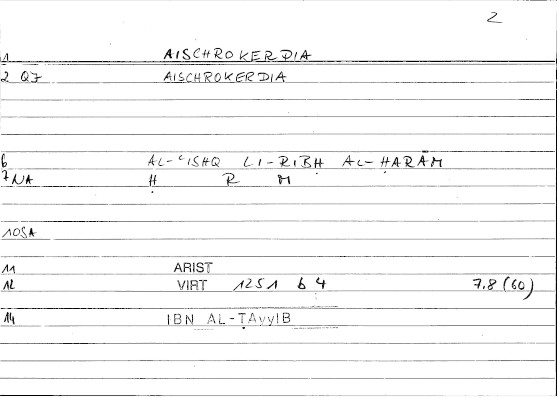 2
1 AISCHROKERDIA
2 Q7 AISCHROKERDIA
6 AL-ʿISHQ LI-RIBḤ AL-ḤARĀM
7 NA Ḥ R M
10 SA
11 ARIST
12 VIRT 1251 b 4 7.8 (60)
14 IBN AL-ṬAyyIB